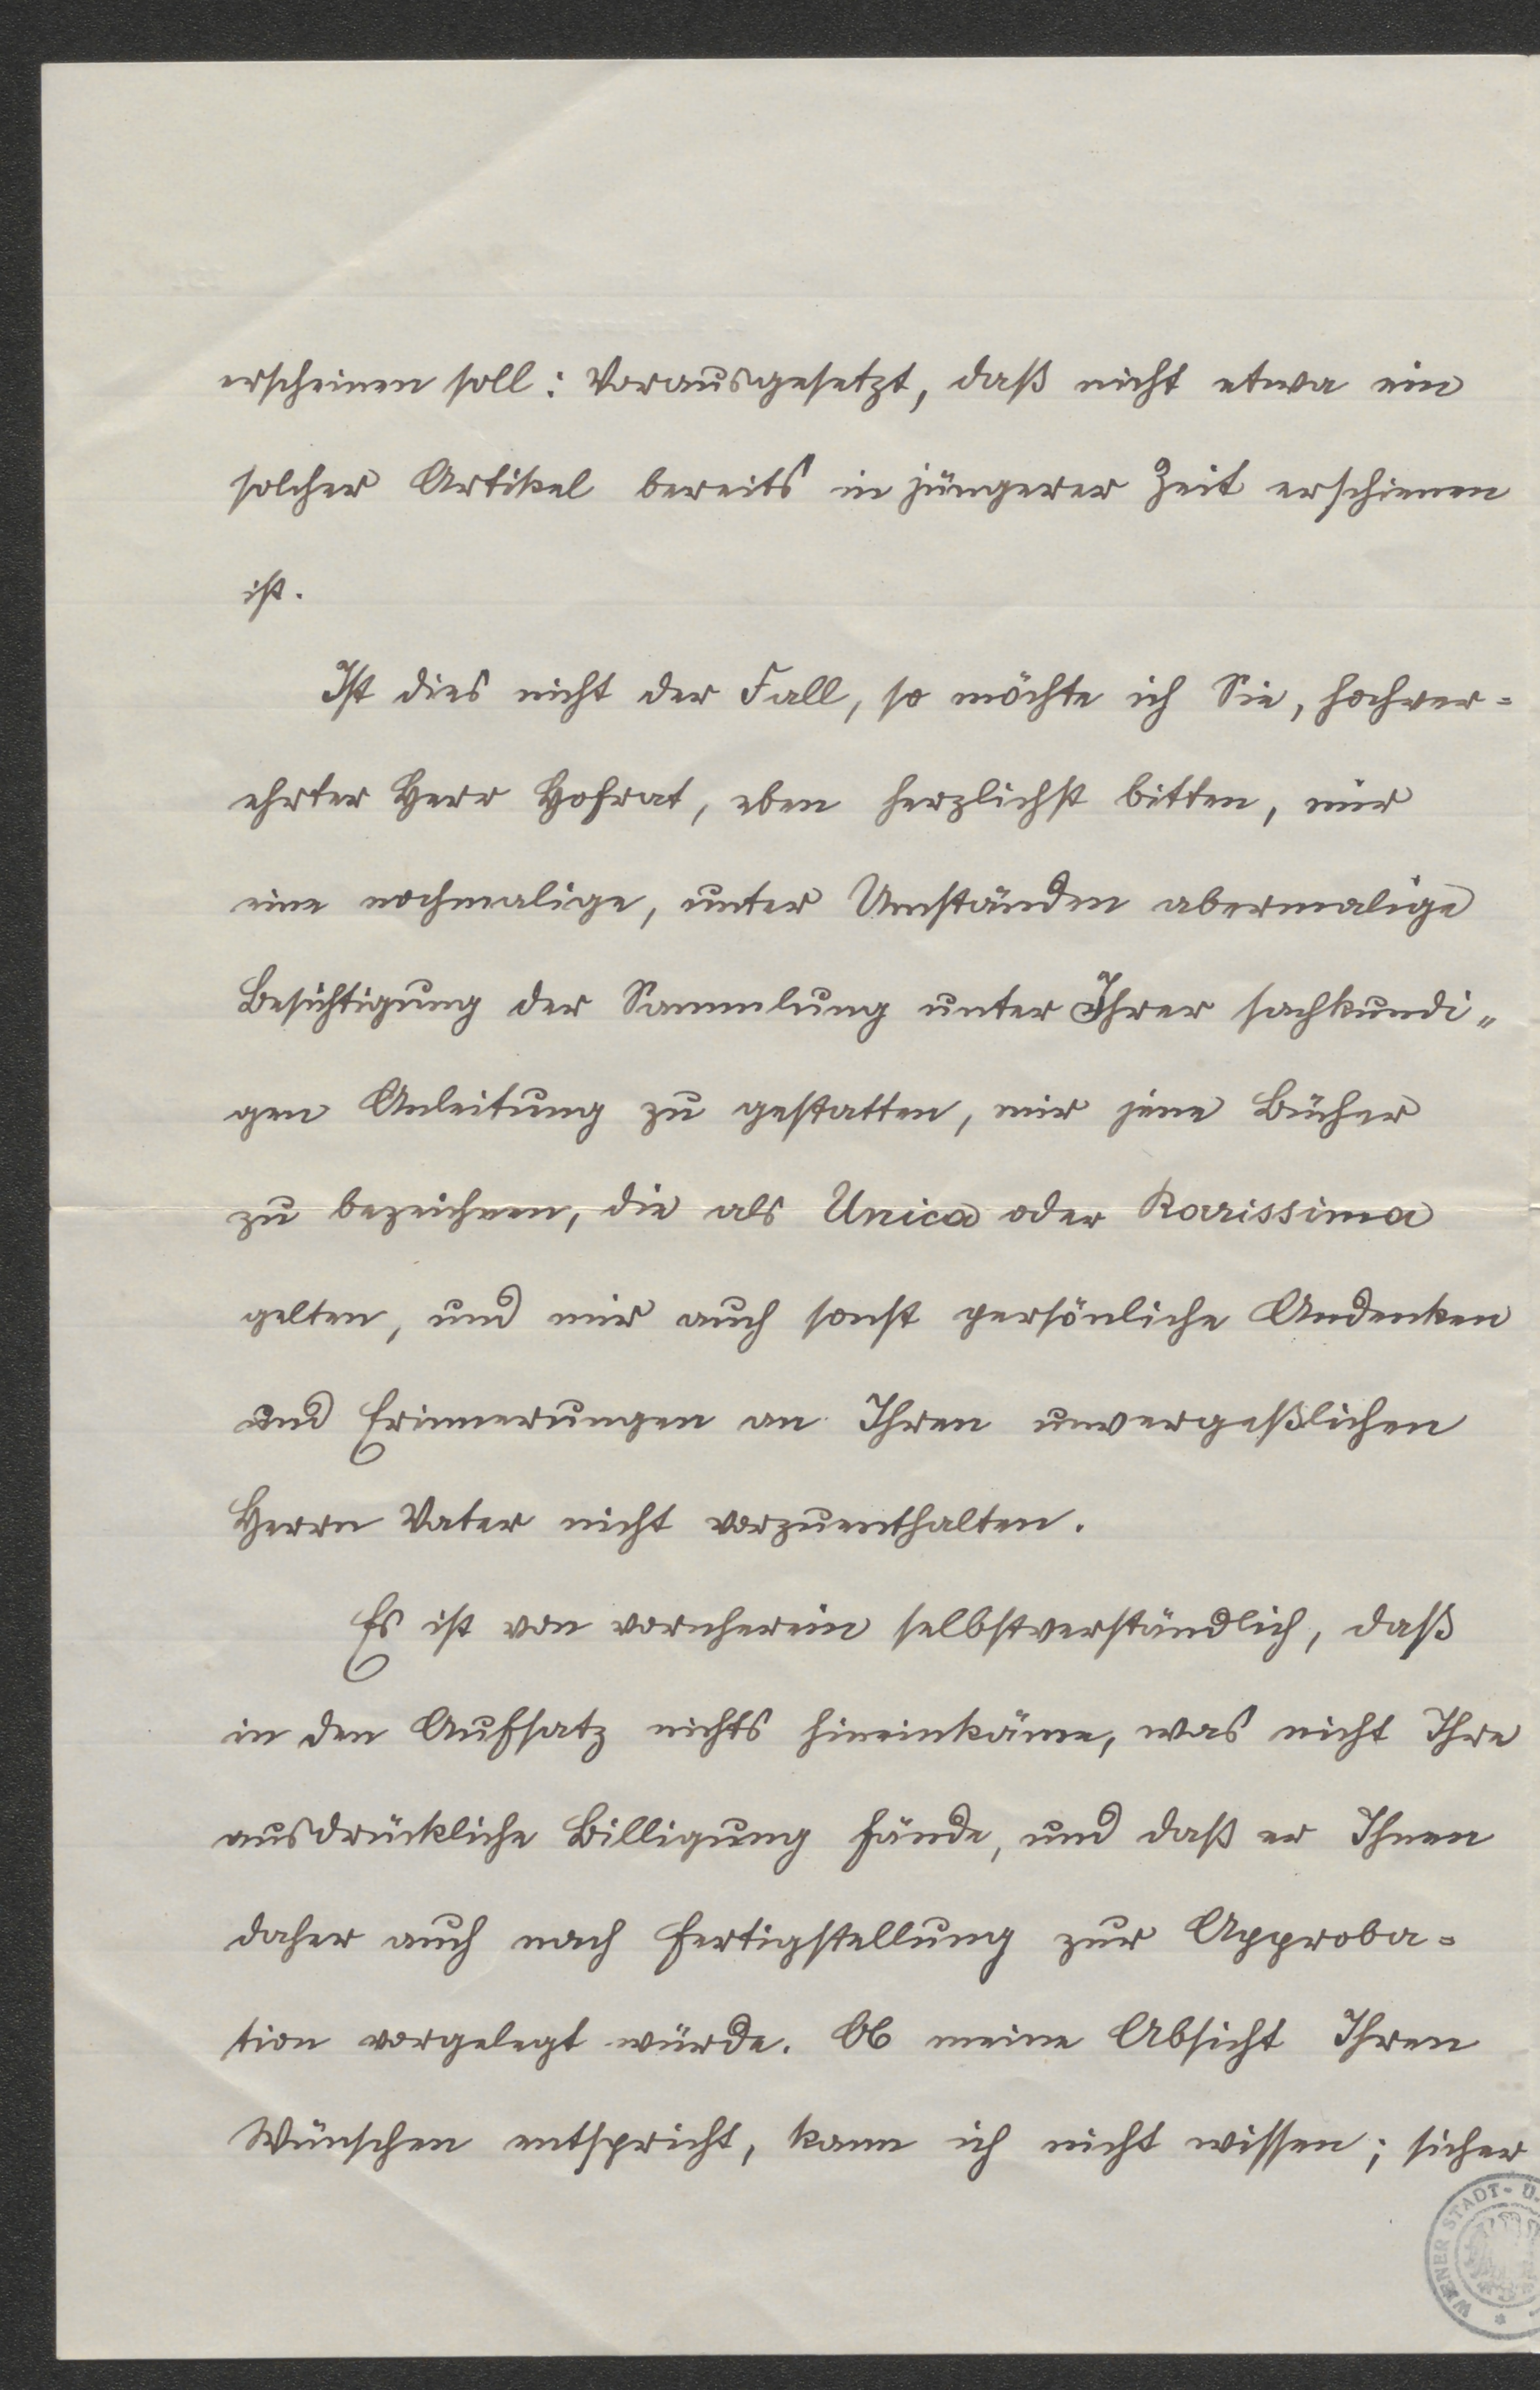 erscheinen soll: Vorausgesetzt, daß nicht etwa ein
solcher Artikel bereits in jüngerer Zeit erschienen
ist.
Ist dies nicht der Fall, so möchte ich Sie, hochver=
ehrter Herr Hofrat, eben herzlichst bitten, mir
eine nochmalige, unter Umständen abermalige
Besichtigung der Sammlung unter Ihrer sachkundi„
gen Anleitung zu gestatten, mir jene Bücher
zu bezeichnen, die als Unica oder Rarissima
gelten, und mir auch sonst persönliche Andenken
und Erinnerungen an Ihren unvergeßlichen
Herrn Vater nicht vorzuenthalten.
Es ist von vornherein selbstverständlich, daß
in den Aufsatz nichts hineinkäme, was nicht Ihre
ausdrückliche Billigung fände, und daß er Ihnen
daher auch nach Fertigstellung zur Approba=
tion vorgelegt würde. Ob meine Absicht Ihren
Wünschen entspricht, kann ich nicht wissen; sicher
WIENER STADT- U.